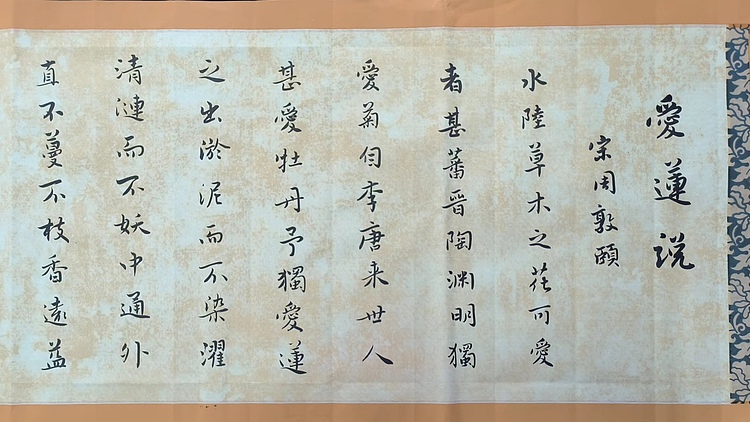 愛蓮説
宗周敦頤
水陸草木之花可愛
者甚蕃晉陶渊明獨
愛菊自李唐来世人
甚愛牡丹予獨愛蓮
之出淤泥而不染濯
清漣而不妖中通外
直不蔓不枝香遠益